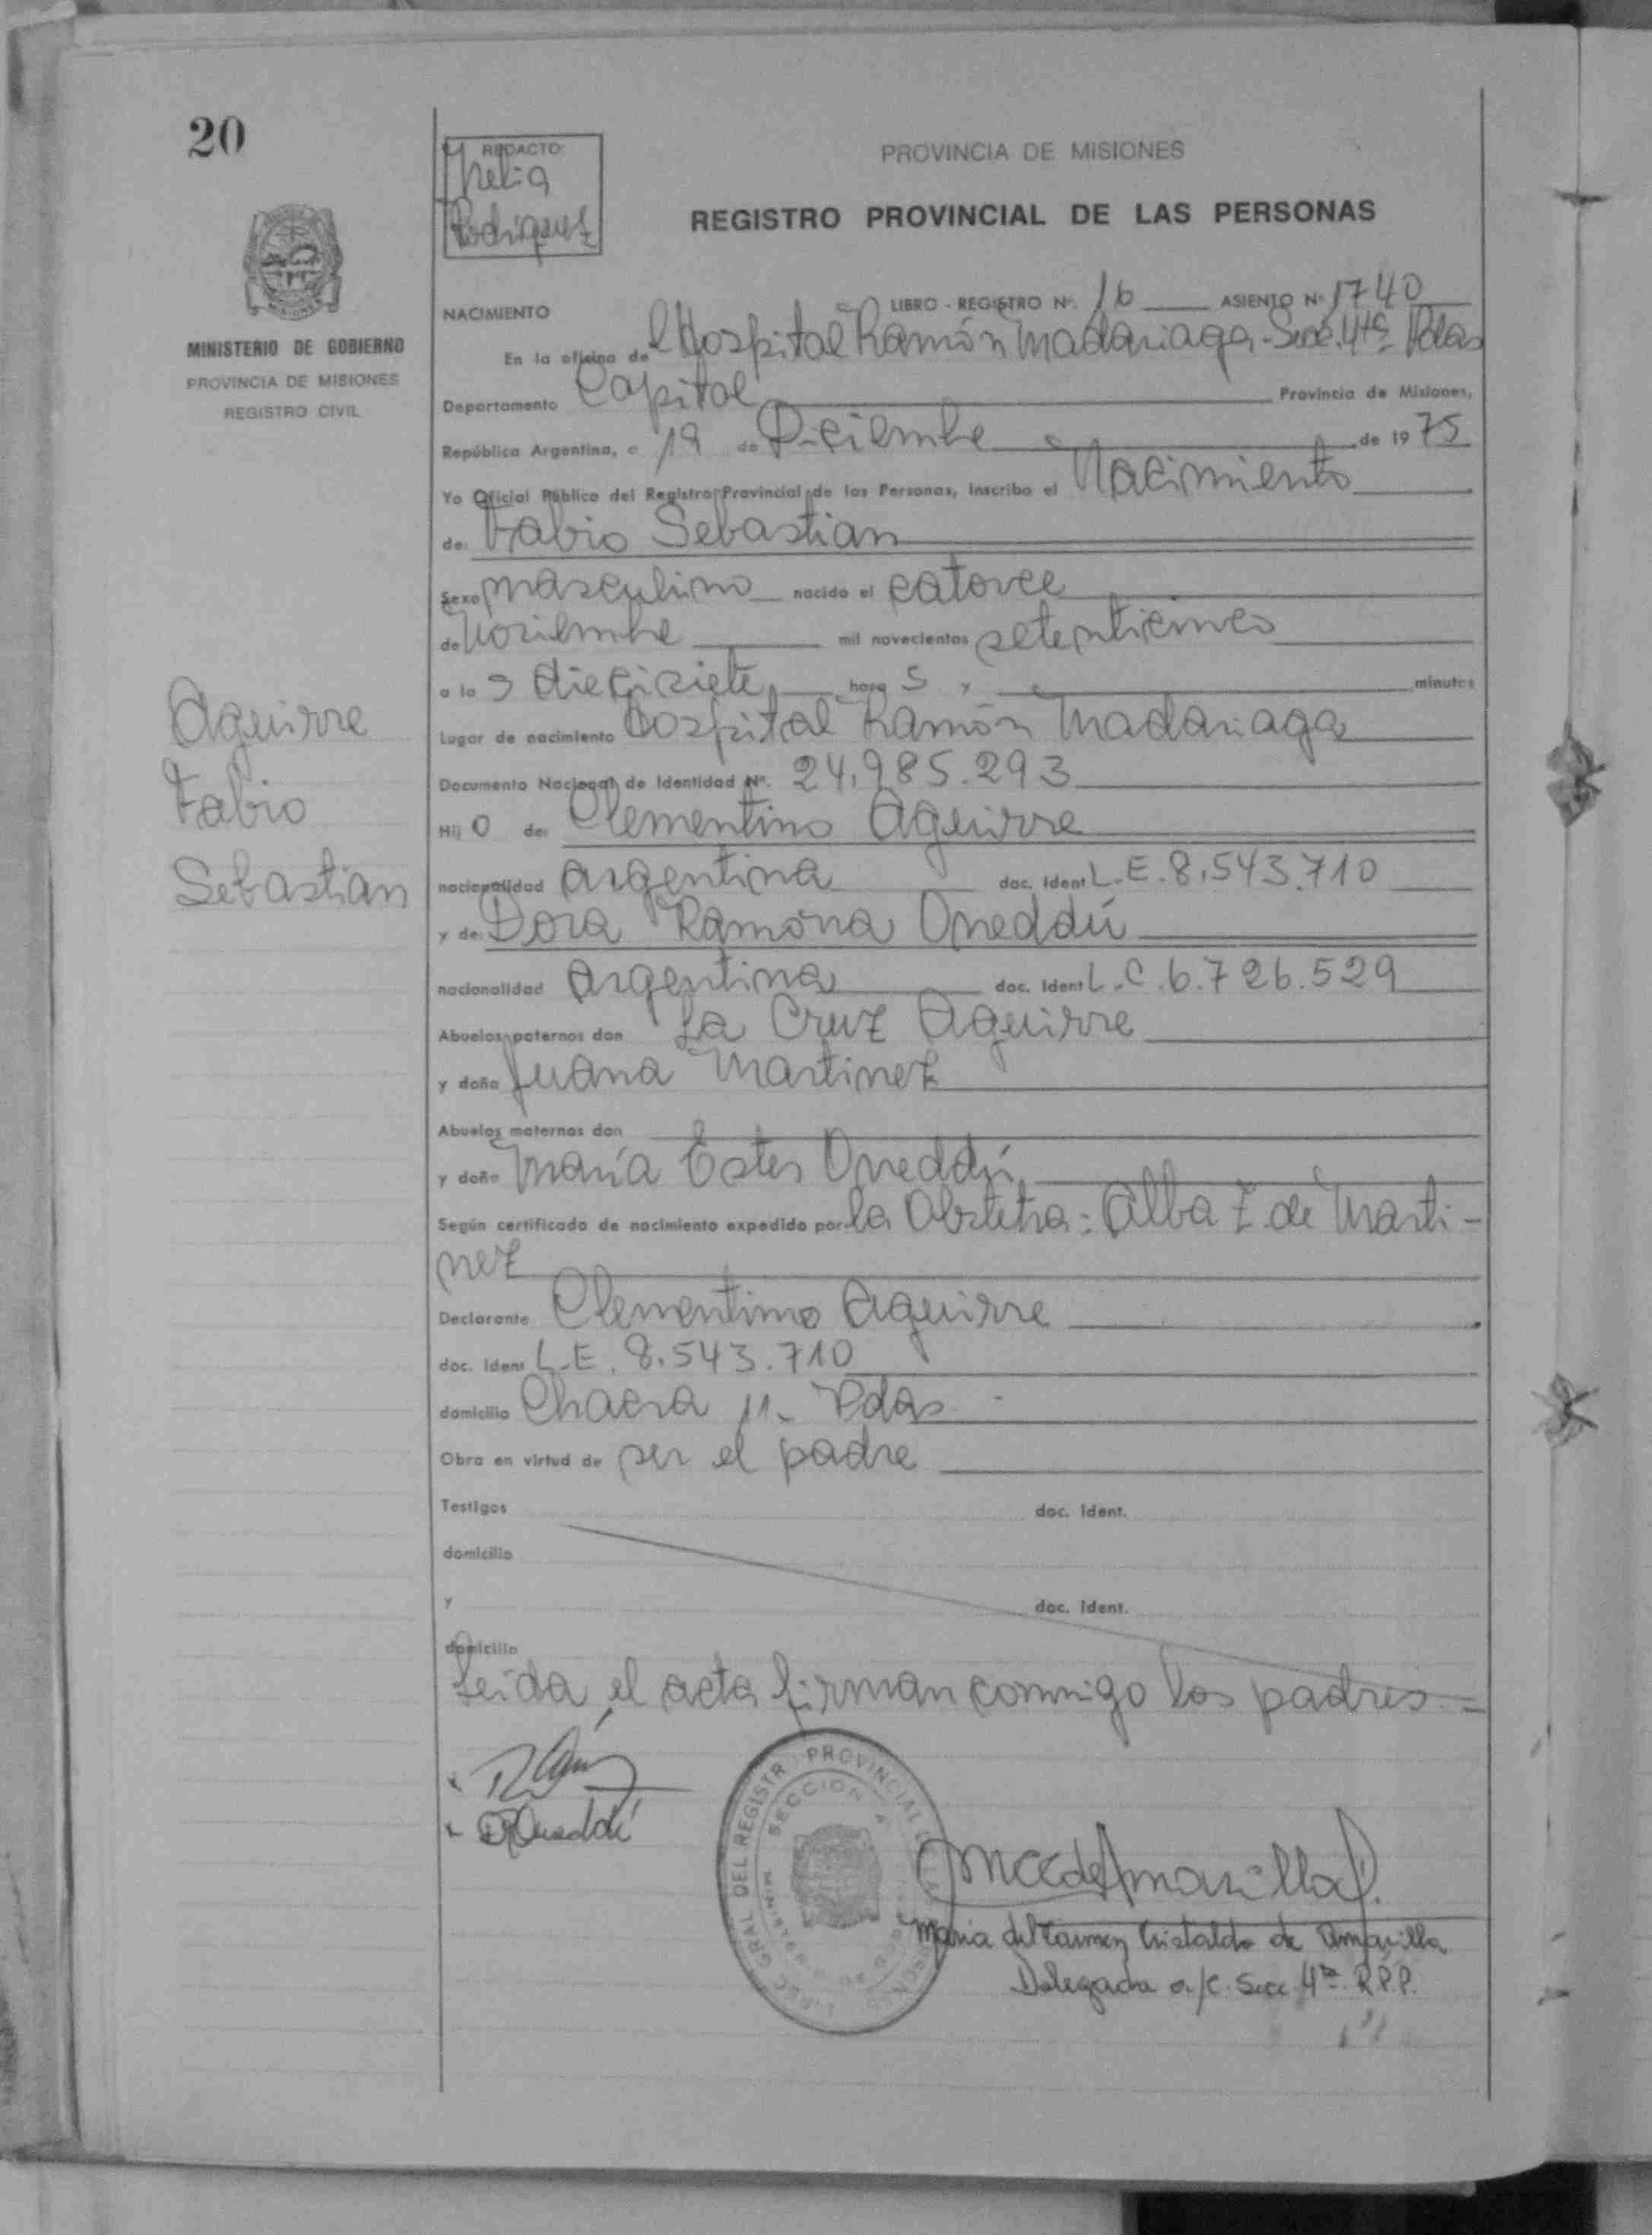 20
REDACTO:
Rodriguez
PROVINCIA DE MISIONES
REGISTRO PROVINCIAL DE LAS PERSONAS
MINISTERIO DE GOBIERNO
PROVINCIA DE MISIONES
REGISTRO CIVIL
NACIMIENTO
LIBRO - REGISTRO Nº. 16 ASIENTO Nº 1740
En la oficina del Hospital Ramón Madariaga - Secc. 4ta Pdas
Departamento Capital Provincia de Misiones,
República Argentina, a 19 de Diciembre de 1975
Yo Oficial Público del Registro Provincial de las Personas, inscribo el Nacimiento
de: Fabio Sebastian
Sexo masculino nacido el catorce
de Noviembre mil novecientos setenticinco
a las diecisiete horas y minutos
Lugar de nacimiento Hospital Ramón Madariaga
Documento Nacional de Identidad Nº. 24.985.293
Hijo de: Clementino Aguirre
nacionalidad argentina doc. ident L.E. 8.543.710
y de: Dora Ramona Oneddú
nacionalidad argentina doc. ident L.C. 6.726.529
Abuelos paternos don La Cruz Aguirre
y doña Juana Martinez
Abuelos maternos don
y doña María Ester Oneddú
Según certificado de nacimiento expedido por la Obstetra: Alba Z. de Marti-
nez
Declarante Clementino Aguirre
doc. ident L.E. 8.543.710
domicilio Chacra 11- Pdas
Obra en virtud de ser el padre
Testigos doc. ident.
domicilio
y doc. ident.
domicilio
Leida el acta firman conmigo los padres.=
Aguirre
Fabio
Sebastian
DROneddú
DIREC GRAL DEL REGISTR PROVINCIAL
SECCION 4
María del Carmen Cristaldo de Amarilla
Delegada a/c. Secc 4ta R.P.P.